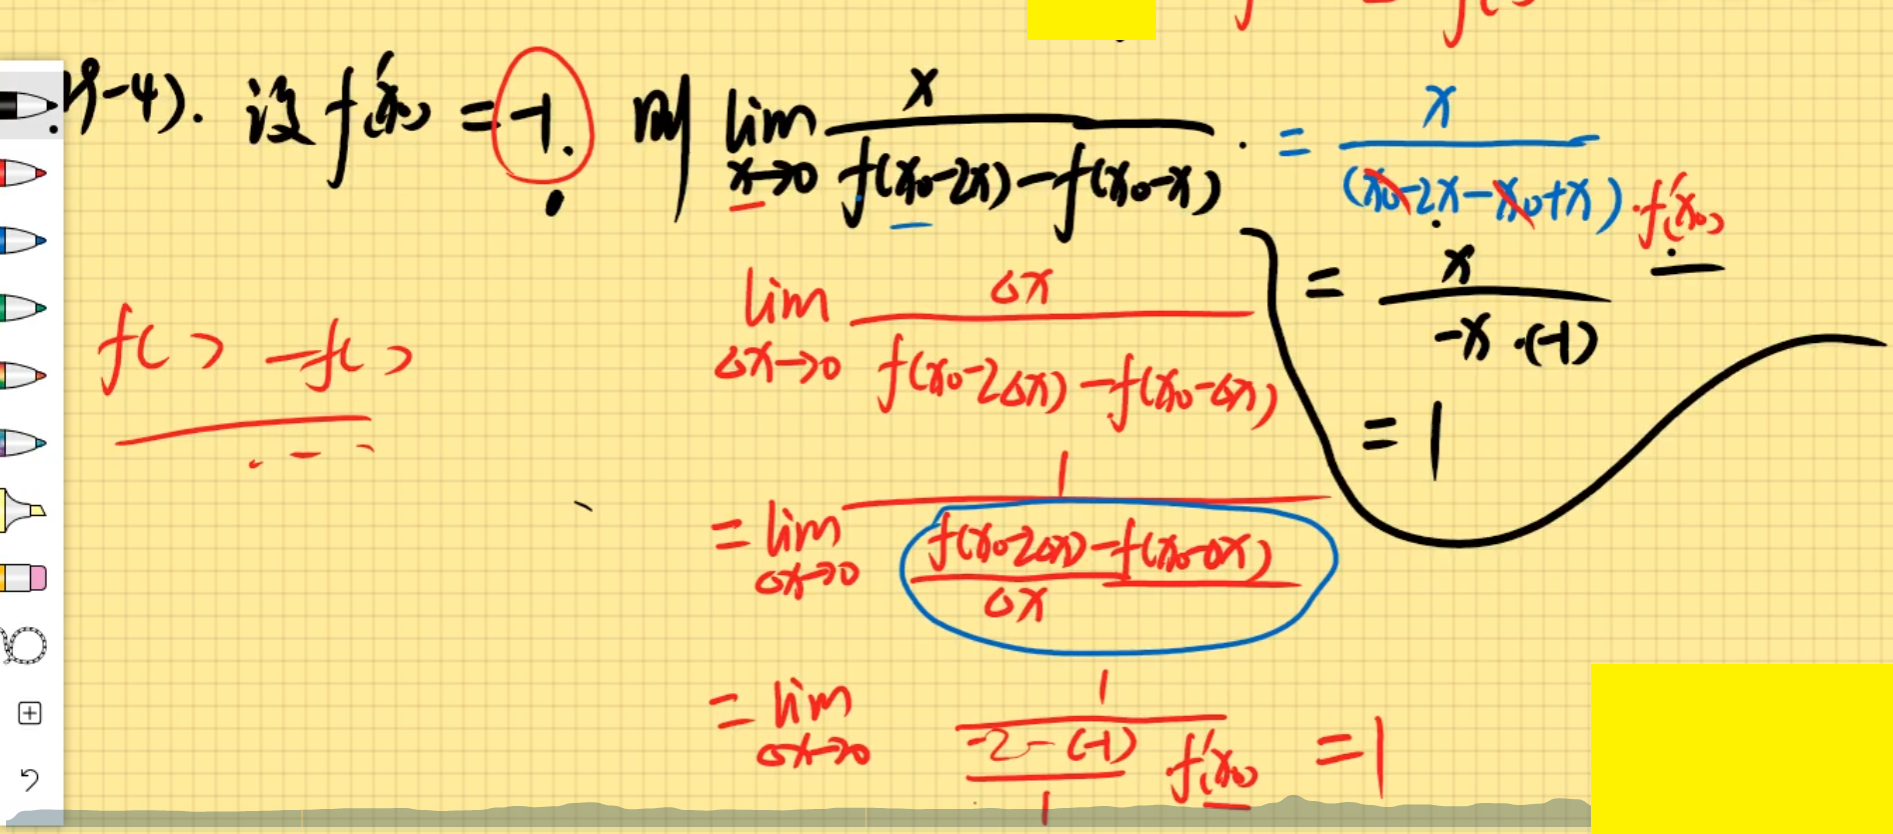 例-4). 设 f'(x₀) = -1. 则 lim x→0 x / (f(x₀-2x) - f(x₀-x)) . = x / ((x₀-2x-x₀+x)·f'(x₀))
= x / (-x·(-1))
= 1
f( ) - f( )
lim Δx→0 Δx / (f(x₀-2Δx) - f(x₀-Δx))
= lim Δx→0 1 / ((f(x₀-2Δx) - f(x₀-Δx)) / Δx)
= lim Δx→0 1 / ((-2-(-1)) / 1 f'(x₀)) = 1